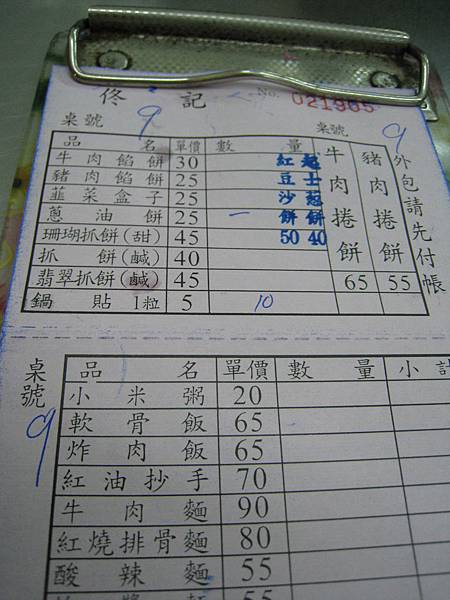 佟記
No. 021965
桌號 9
桌號 9
品名 單價 數量
牛肉餡餅 30
豬肉餡餅 25
韭菜盒子 25
蔥油餅 25 一
珊瑚抓餅(甜) 45
抓餅(鹹) 40
翡翠抓餅(鹹) 45
鍋貼1粒 5 10
紅豆沙餅 50
起士蔥餅 40
牛肉捲餅 65
豬肉捲餅 55
外包請先付帳
桌號 9
品名 單價 數量 小計
小米粥 20
軟骨飯 65
炸肉飯 65
紅油抄手 70
牛肉麵 90
紅燒排骨麵 80
酸辣麵 55
55